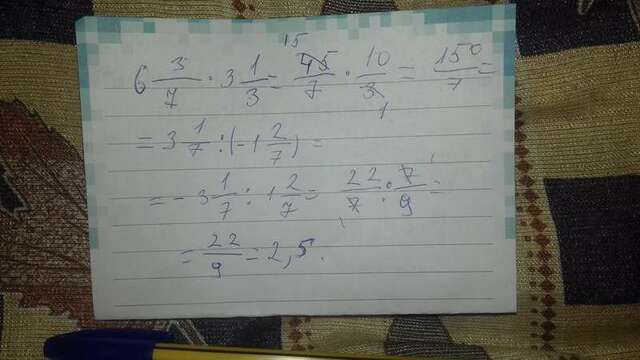 6 3/7 · 3 1/3 = 45/7 15 · 10/3 1 = 150/7 =
= 3 1/7 : (-1 2/7) =
= - 3 1/7 : 1 2/7 = 22/7 1 : 7/9 1 =
= 22/9 = 2,5.